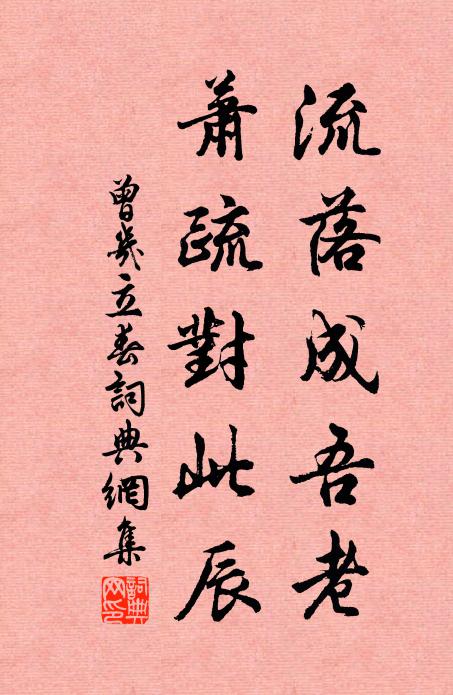 流落成吾老
蕭疏對此辰
曾幾立春詞典網集
詞典网印